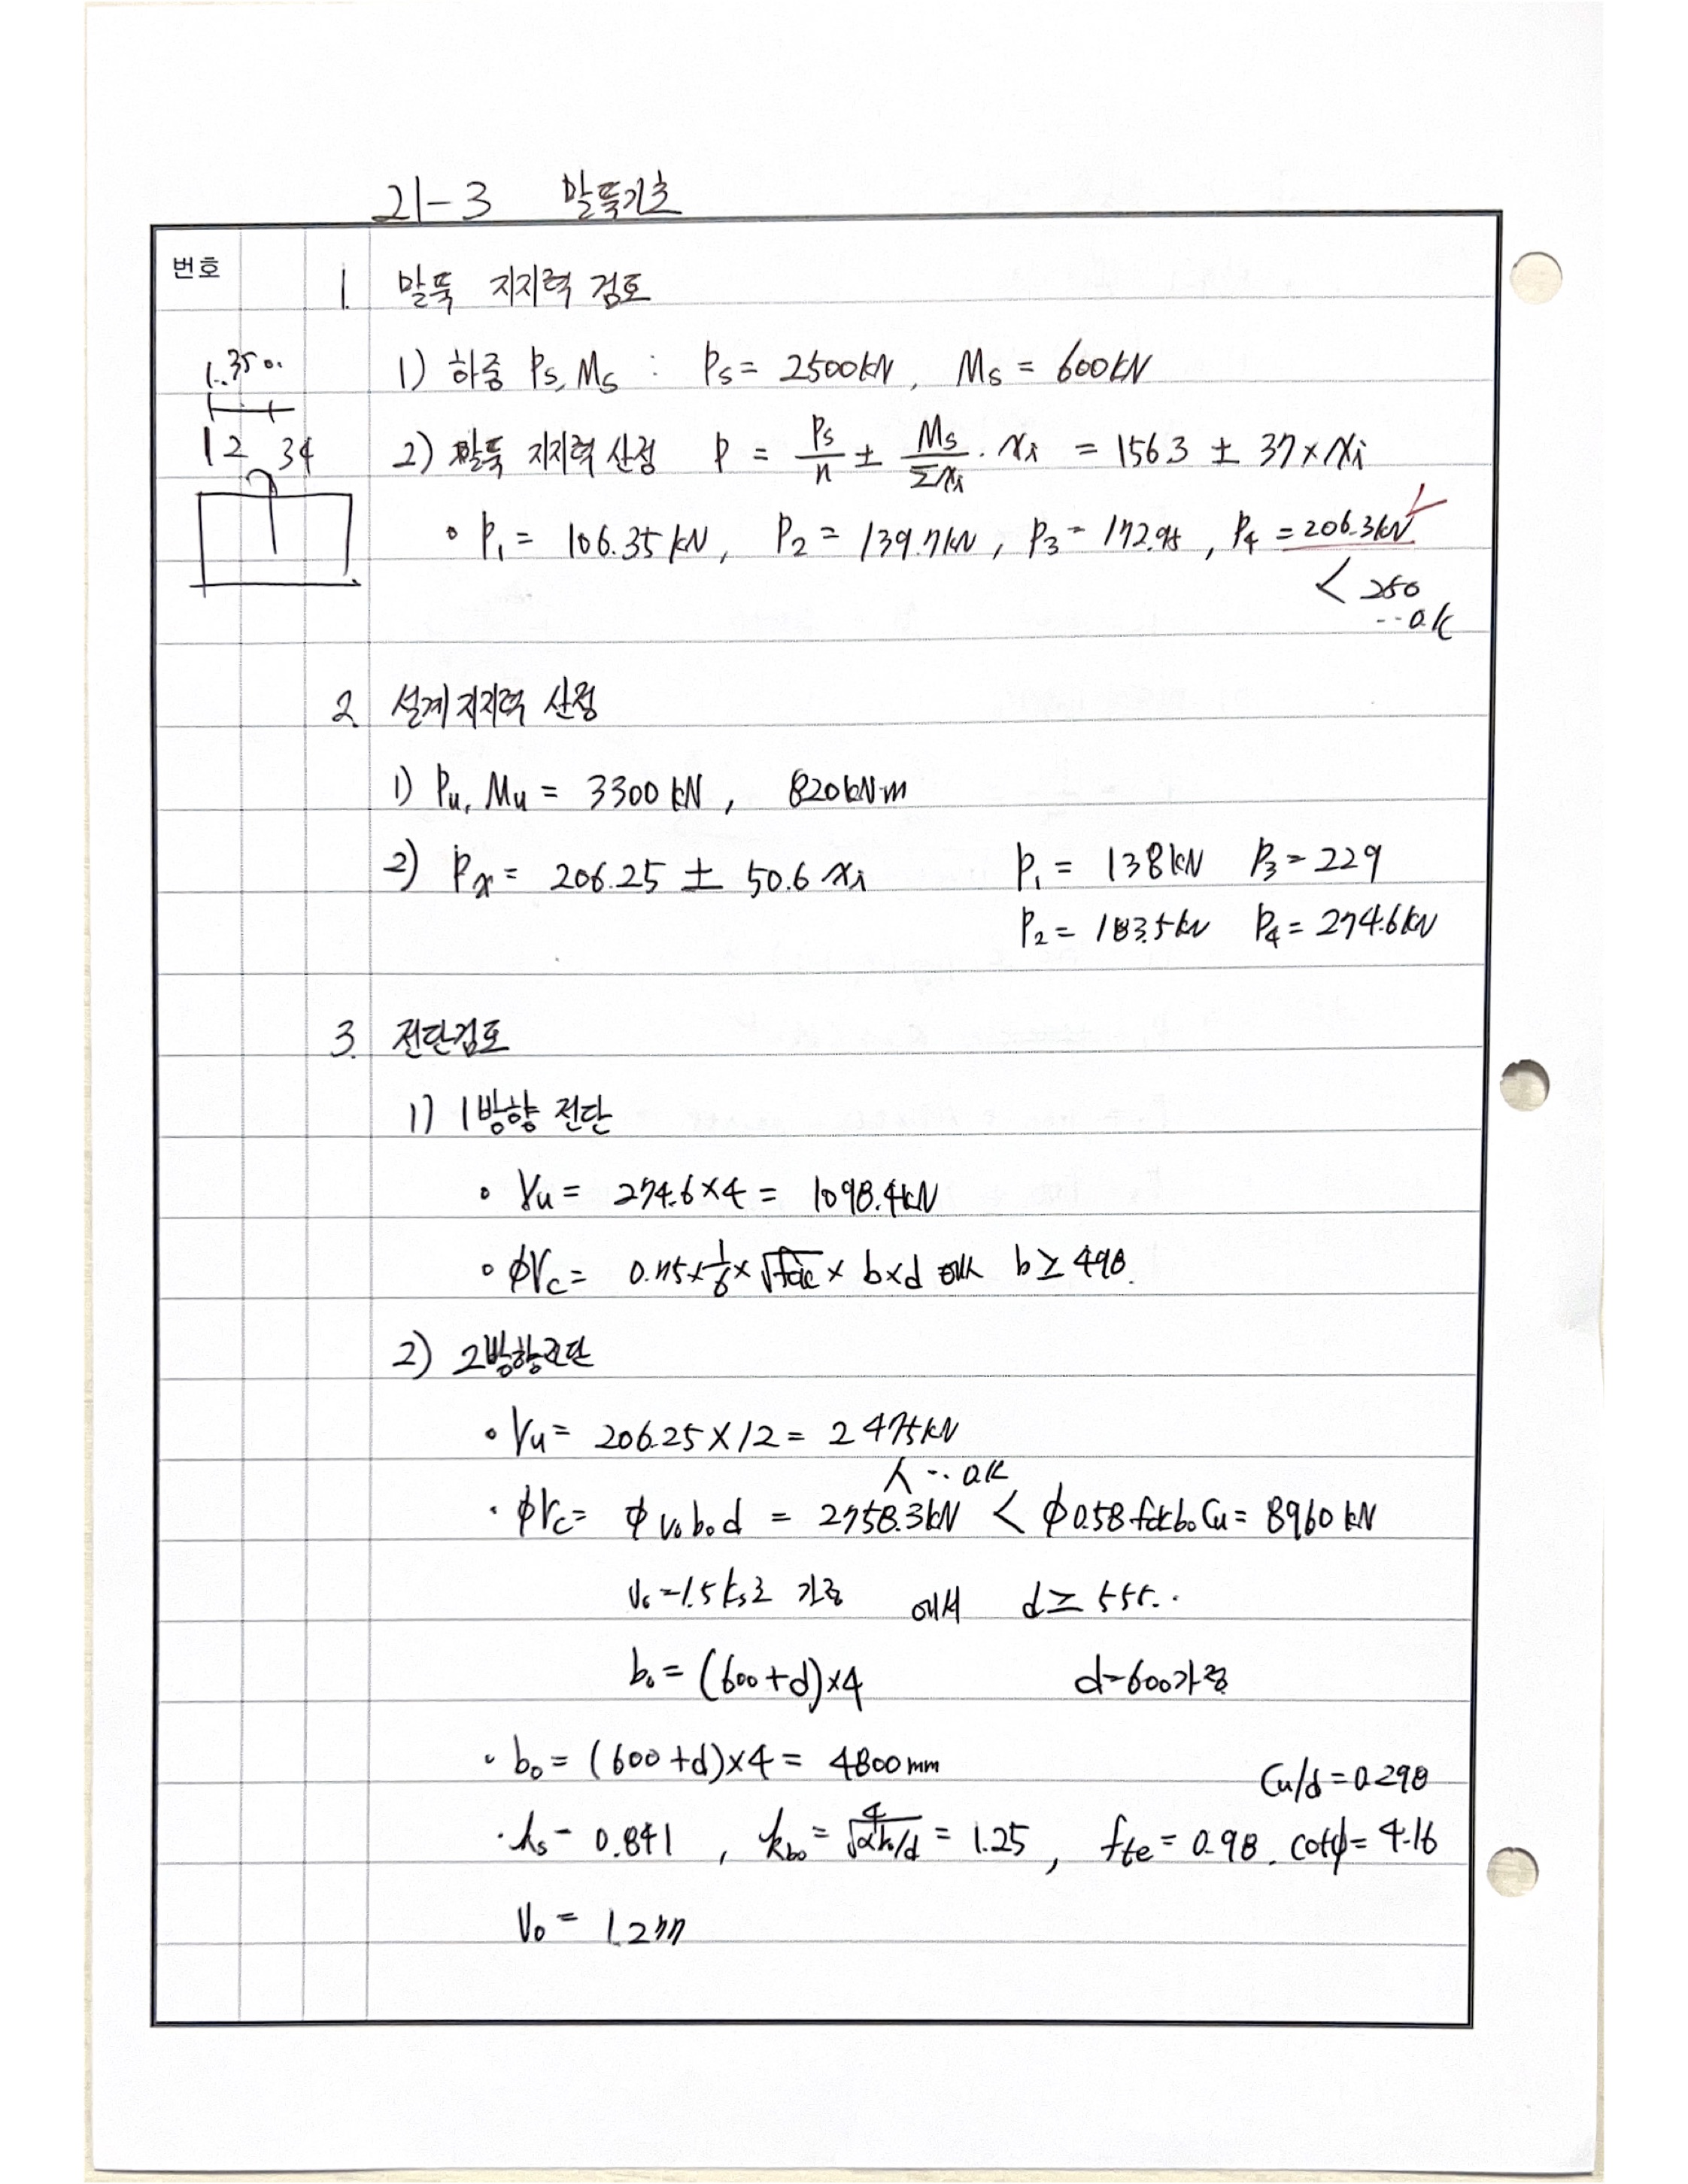 21-3 말뚝기초
번호
1. 말뚝 지지력 검토
1) 하중 Ps, Ms : Ps = 2500kN, Ms = 600kN
1.350.
1 2 3 4
2) 말뚝 지지력 산정 P = Ps/n ± Ms/Σxi · xi = 156.3 ± 37 × xi
• P1 = 106.35kN, P2 = 139.7kN, P3 = 172.95, P4 = 206.3kN
< 250
∴ ok
2. 설계지지력 산정
1) Pu, Mu = 3300kN, 820kN·m
2) Px = 206.25 ± 50.6 xi P1 = 138kN P3 = 229
P2 = 183.5kN P4 = 274.6kN
3. 전단검토
1) 1방향 전단
• Vu = 274.6×4 = 1098.4kN
• φVc = 0.75×1/6×√fck × b×d 에서 b ≥ 498.
2) 2방향전단
• Vu = 206.25×12 = 2475kN
∧ ∴ ok
• φVc = φ v0 b0 d = 2758.3kN < φ0.58 fck b0 Cu = 8960kN
Vc = 1.5 ks로 가정 에서 d ≥ 555..
b0 = (600+d)×4 d=600가정
• b0 = (600+d)×4 = 4800mm
Cu/d = 0.298
• ks = 0.841, kb0 = 4/√αb/d = 1.25, fte = 0.98. cotψ = 4.16
V0 = 1.277